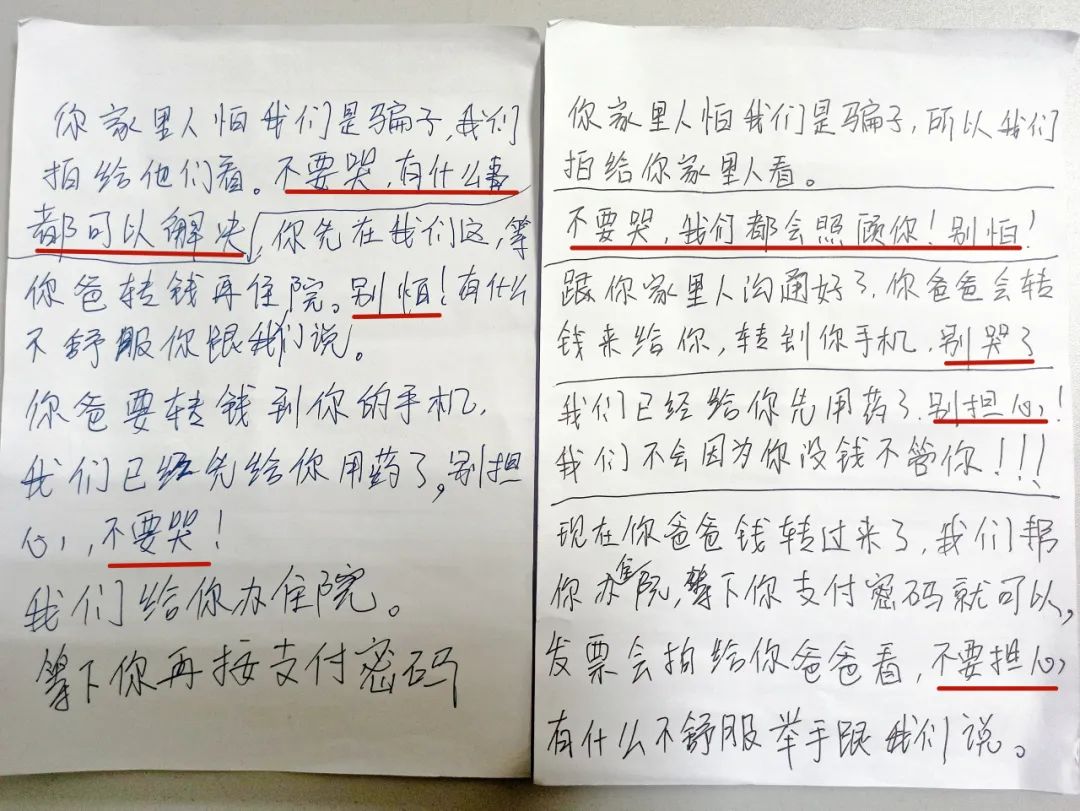 你家里人怕我们是骗子,我们
拍给他们看。不要哭,有什么事
都可以解决,你先在我们这,等
你爸转钱再住院。别怕!有什么
不舒服你跟我们说。
你爸要转钱到你的手机.
我们已经先给你用药了,别担
心,不要哭!
我们给你办住院。
等下你再按支付密码
你家里人怕我们是骗子,所以我们
拍给你家里人看。
不要哭,我们都会照顾你!别怕!
跟你家里人沟通好了,你爸爸会转
钱来给你,转到你手机,别哭了
我们已经给你先用药了.别担心!
我们不会因为你没钱不管你!!!
现在你爸爸钱转过来了,我们帮
你办住院,等下你支付密码就可以,
发票会拍给你爸爸看,不要担心
有什么不舒服举手跟我们说。